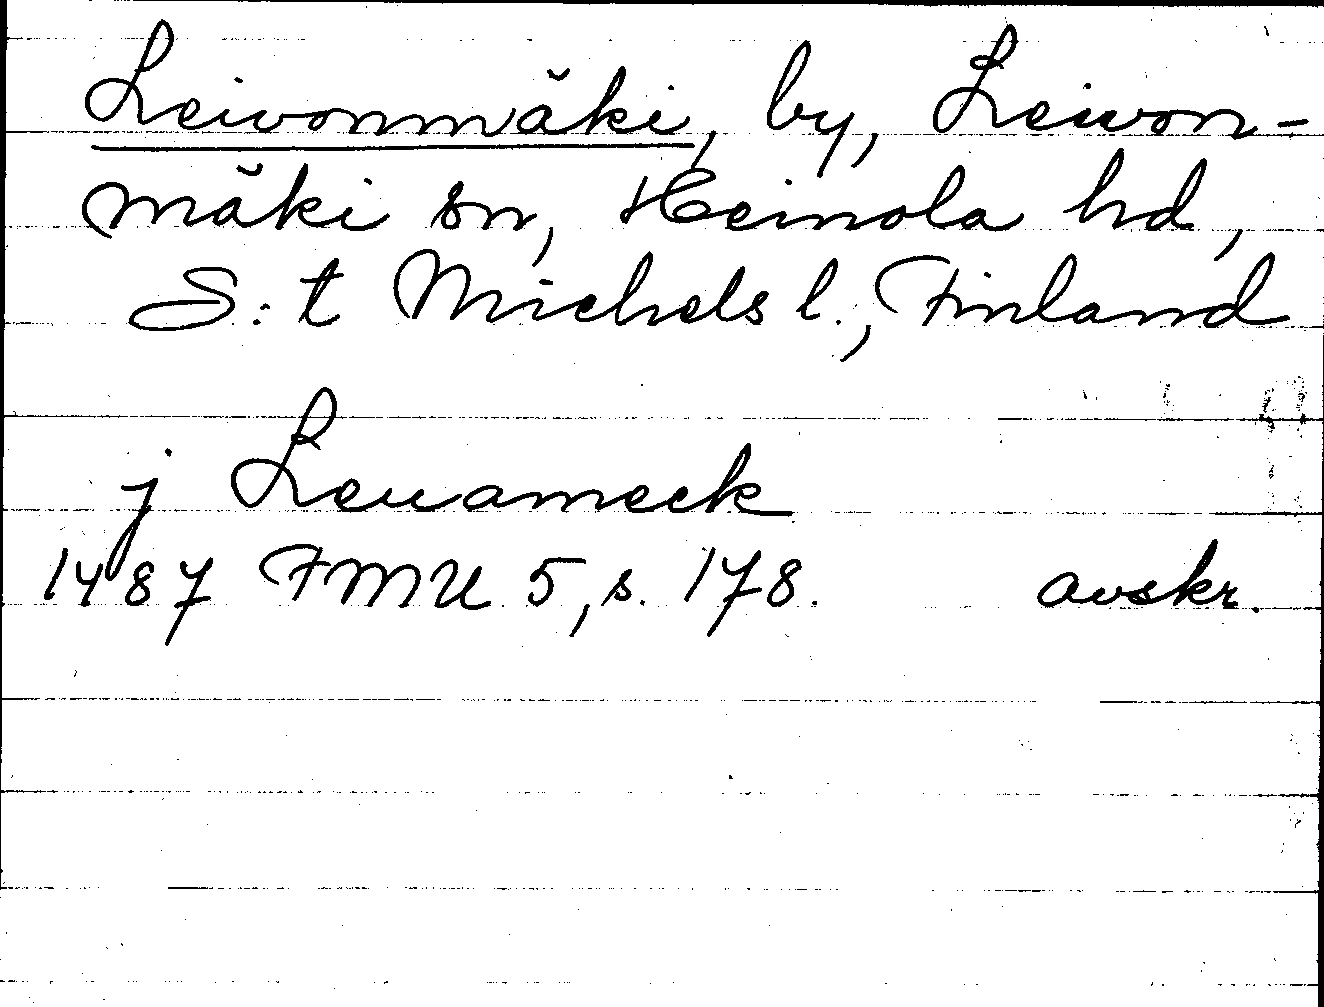 Leivonmäki, by, Leivon-
mäki sn, Heinola hd,
S:t Michels l., Finland
j Leuameck
1487 FMU 5, s. 178. avskr.